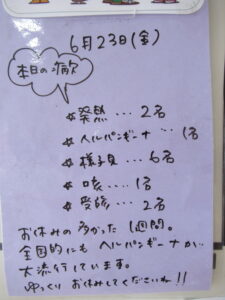 6月23日(金)
本日の病欠
☆発熱…2名
☆ヘルパンギーナ…1名
☆様子見…6名
☆咳…1名
☆受診…2名
お休みの多かった1週間。
全国的にも ヘルパンギーナが、
大流行しています。
ゆっくり お休みしてくださいね!!